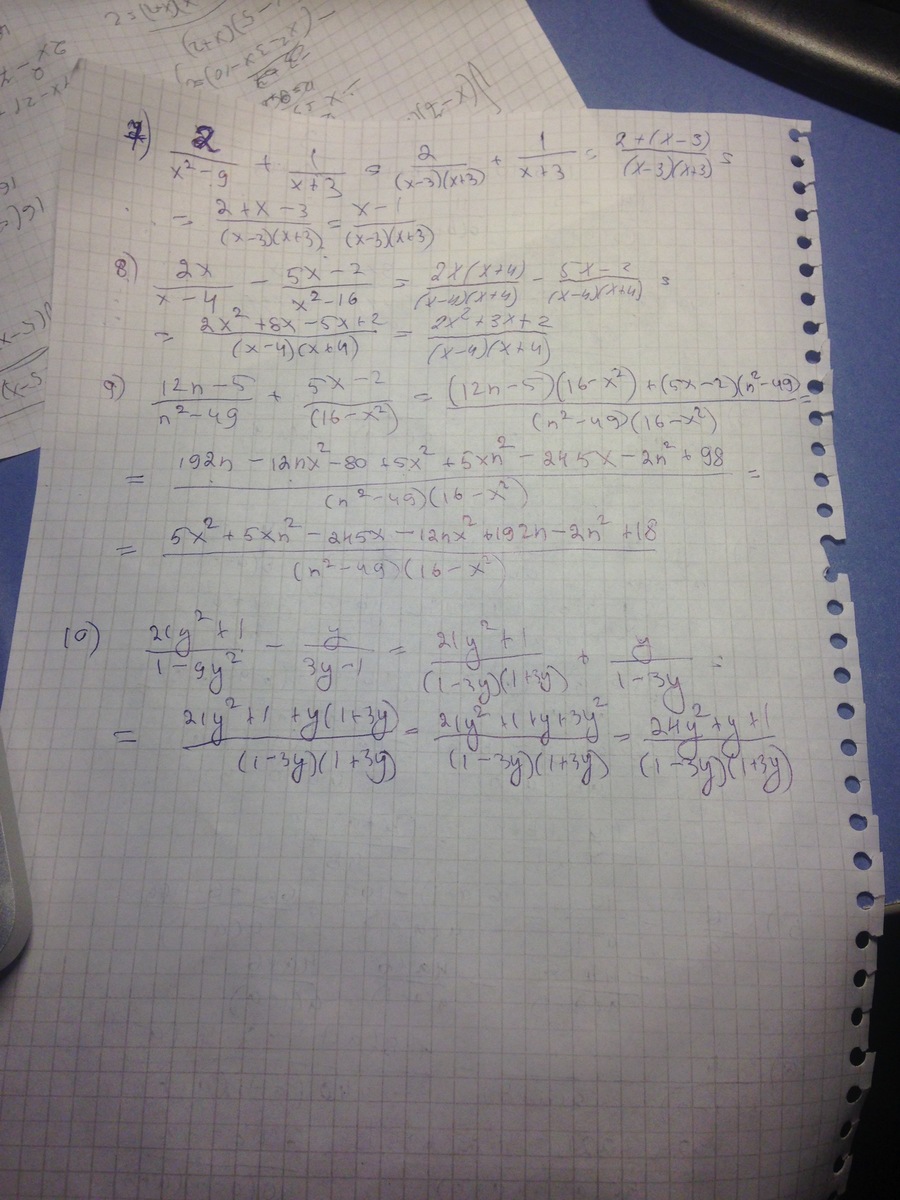 7) 2/(x²-9) + 1/(x+3) = 2/((x-3)(x+3)) + 1/(x+3) = (2+(x-3))/((x-3)(x+3)) =
= (2+x-3)/((x-3)(x+3)) = (x-1)/((x-3)(x+3))
8) 2x/(x-4) - (5x-2)/(x²-16) = 2x(x+4)/((x-4)(x+4)) - (5x-2)/((x-4)(x+4)) =
= (2x²+8x-5x+2)/((x-4)(x+4)) = (2x²+3x+2)/((x-4)(x+4))
9) (12n-5)/(n²-49) + (5x-2)/(16-x²) = ((12n-5)(16-x²)+(5x-2)(n²-49))/((n²-49)(16-x²)) =
= (192n-12nx²-80+5x²+5xn²-245x-2n²+98)/((n²-49)(16-x²)) =
= (5x²+5xn²-245x-12nx²+192n-2n²+18)/((n²-49)(16-x²))
10) (21y²+1)/(1-9y²) - y/(3y-1) = (21y²+1)/((1-3y)(1+3y)) + y/(1-3y) =
= (21y²+1+y(1+3y))/((1-3y)(1+3y)) = (21y²+1+y+3y²)/((1-3y)(1+3y)) = (24y²+y+1)/((1-3y)(1+3y))